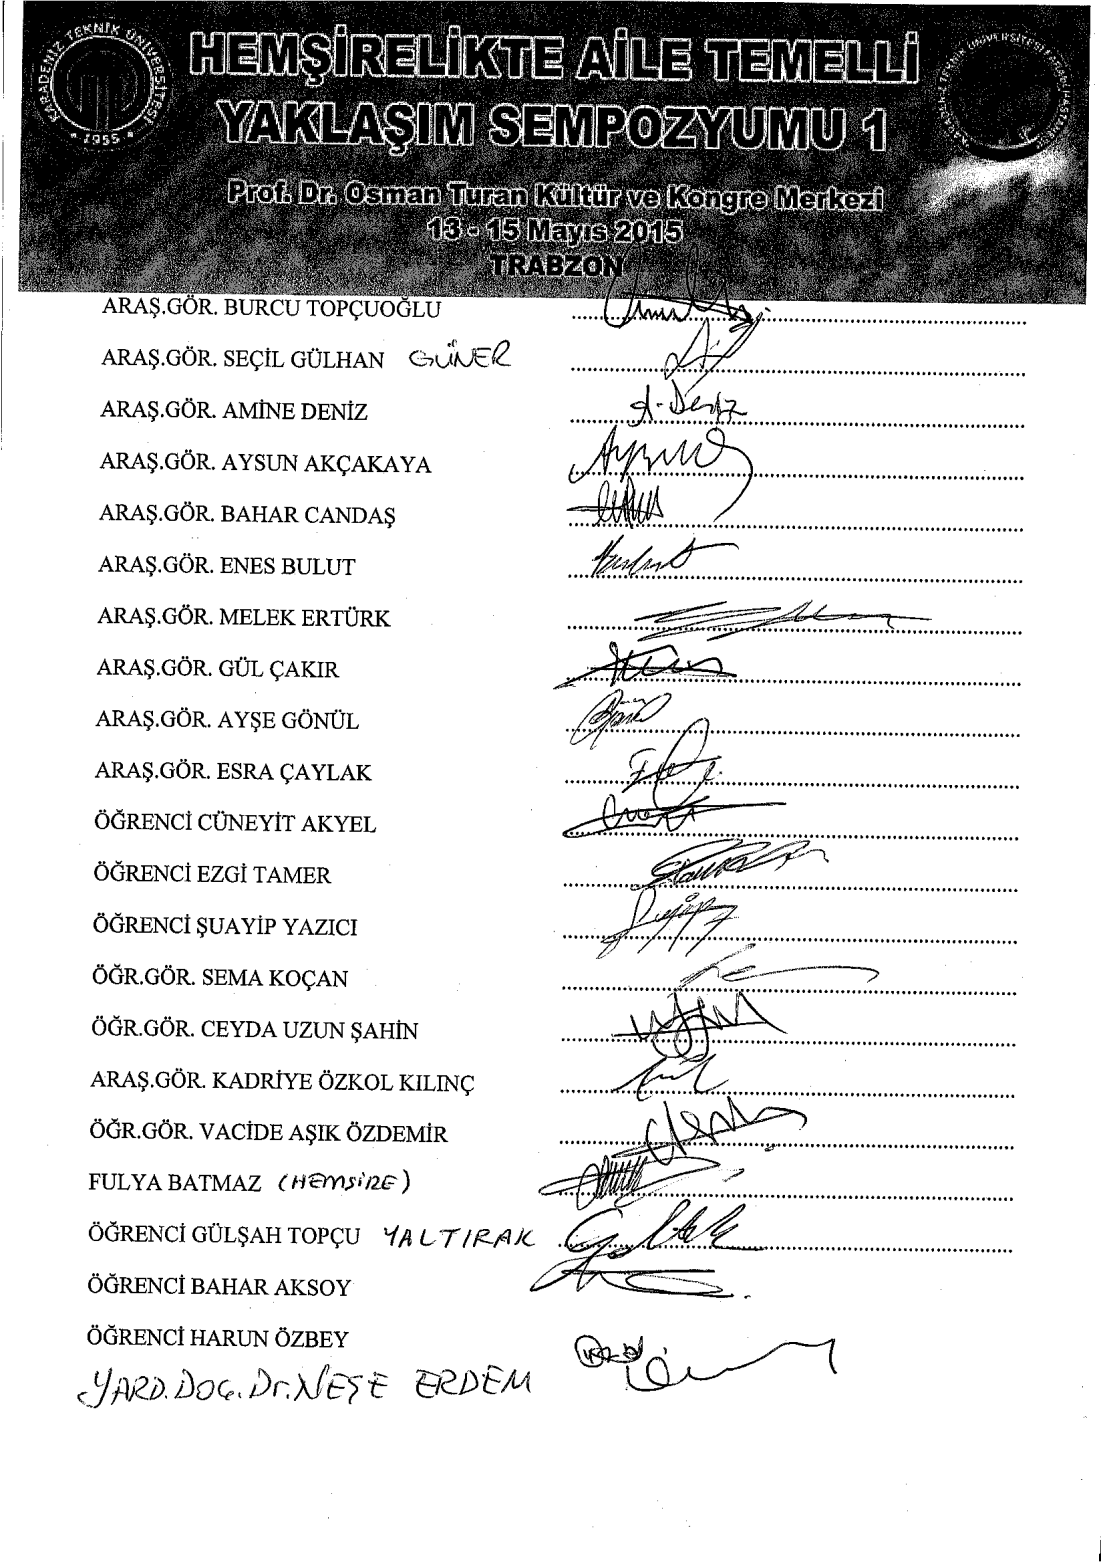 KARADENİZ TEKNİK ÜNİVERSİTESİ
1955
HEMŞİRELİKTE AİLE TEMELLİ
YAKLAŞIM SEMPOZYUMU 1
Prof. Dr. Osman Turan Kültür ve Kongre Merkezi
13 - 15 Mayıs 2015
TRABZON
ARAŞ.GÖR. BURCU TOPÇUOĞLU
ARAŞ.GÖR. SEÇİL GÜLHAN GÜNER
ARAŞ.GÖR. AMİNE DENİZ A. Deniz
ARAŞ.GÖR. AYSUN AKÇAKAYA
ARAŞ.GÖR. BAHAR CANDAŞ
ARAŞ.GÖR. ENES BULUT
ARAŞ.GÖR. MELEK ERTÜRK
ARAŞ.GÖR. GÜL ÇAKIR
ARAŞ.GÖR. AYŞE GÖNÜL
ARAŞ.GÖR. ESRA ÇAYLAK
ÖĞRENCİ CÜNEYİT AKYEL
ÖĞRENCİ EZGİ TAMER
ÖĞRENCİ ŞUAYİP YAZICI
ÖĞR.GÖR. SEMA KOÇAN
ÖĞR.GÖR. CEYDA UZUN ŞAHİN
ARAŞ.GÖR. KADRİYE ÖZKOL KILINÇ
ÖĞR.GÖR. VACİDE AŞIK ÖZDEMİR
FULYA BATMAZ (HEMŞİRE)
ÖĞRENCİ GÜLŞAH TOPÇU YALTIRAK
ÖĞRENCİ BAHAR AKSOY
ÖĞRENCİ HARUN ÖZBEY
YARD.DOÇ.Dr.NEŞE ERDEM